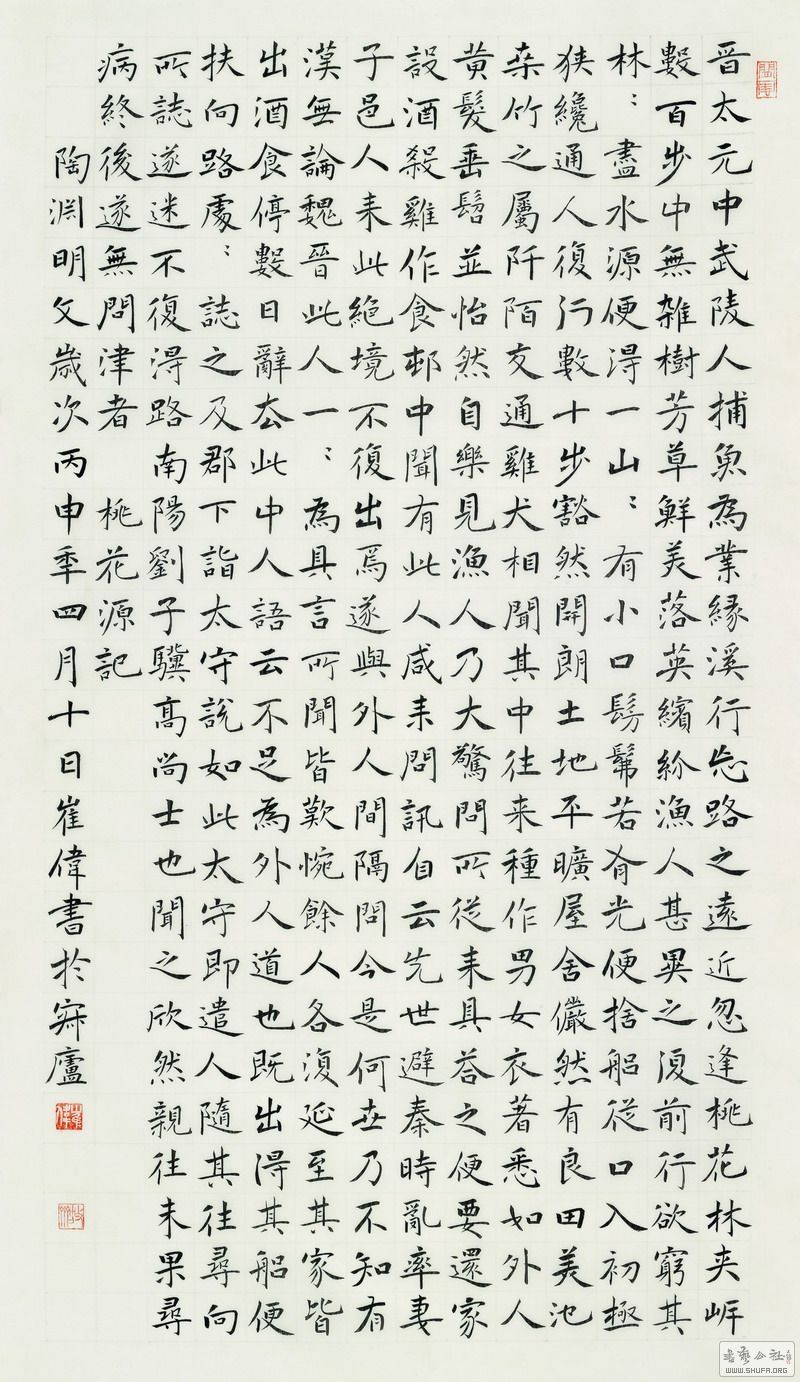 晋太元中武陵人捕魚為業緣溪行忘路之遠近忽逢桃花林夾岸
數百步中無雜樹芳草鮮美落英繽紛漁人甚異之復前行欲窮其
林〻盡水源便得一山〻有小口髣髴若有光便捨船從口入初極
狹纔通人復行數十步豁然開朗土地平曠屋舍儼然有良田美池
桑竹之屬阡陌交通雞犬相聞其中往来種作男女衣著悉如外人
黄髮垂髫並怡然自樂見漁人乃大驚問所從来具答之便要還家
設酒殺雞作食邨中聞有此人咸来問訊自云先世避秦時亂率妻
子邑人来此絕境不復出焉遂與外人間隔問今是何世乃不知有
漢無論魏晉此人一〻為具言所聞皆歎惋餘人各復延至其家皆
出酒食停數日辭去此中人語云不足為外人道也既出得其船便
扶向路處〻誌之及郡下詣太守說如此太守即遣人隨其往尋向
所誌遂迷不復得路南陽劉子驥高尚士也聞之欣然親往未果尋
病終後遂無問津者 桃花源記
陶淵明文歲次丙申年四月十日崔偉書於廬
WWW.SHUFA.ORG